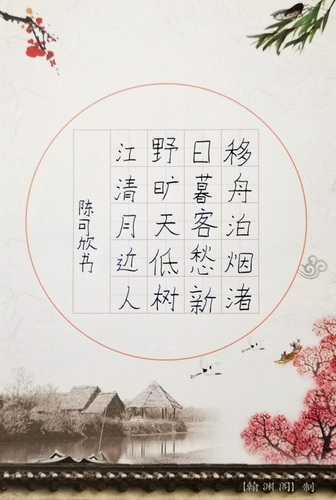 移舟泊烟渚
日暮客愁新
野旷天低树
江清月近人
陈可欣书
【翰渊阁】制